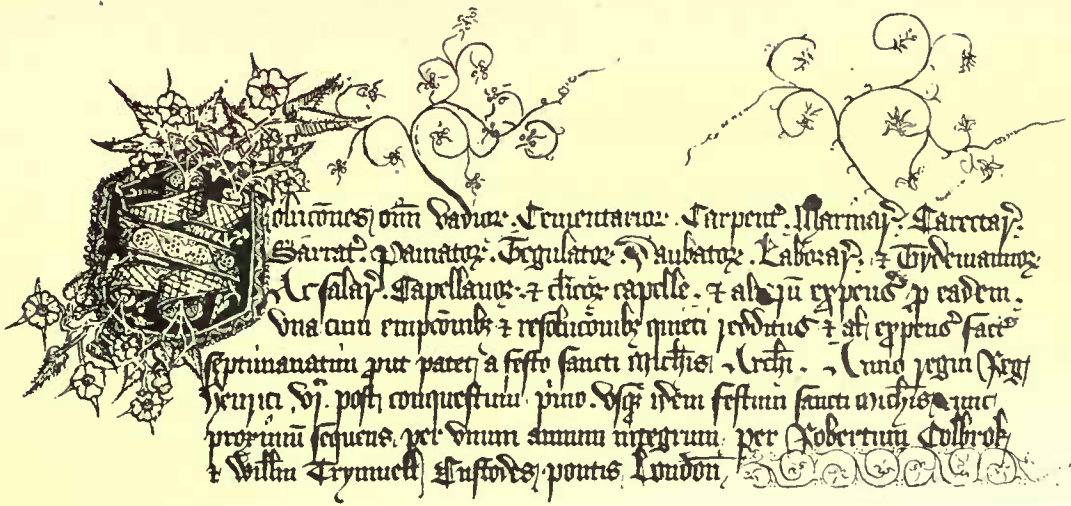 Soluc̄ones om̄i vadior. Cementarior. Carpent'. Marmar'. Carectar'.
Sarrat'. Pauiator. Tegulator. Daubator. Laborar'. & Tydemannor.
Ac salar'. Capellanor. & cl̄icor capelle. & alior̄u expens' p eadem.
vna cum empc̄onibz & resoluc̄onibz quieti redditus & al' expens' fact'
septimanatim put patet a festo sancti Mich̄is Archi. Anno regni Reg'
Henrici . vj. post conquestum p̄imo. vsq idem festum sancti Mich̄is tunc
proximu sequens. per vnum annum integrum. per Robertum Colbrok
& Will̄m Trymell Custodes pontis London